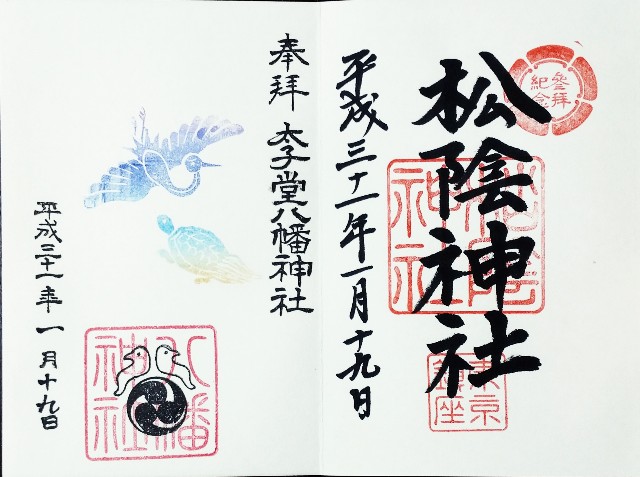 参拝
紀念
松陰神社
松陰
神社
東京
鎮座
平成三十一年一月十九日
奉拝 太子堂八幡神社
八幡
神社
平成三十一年 一月十九日